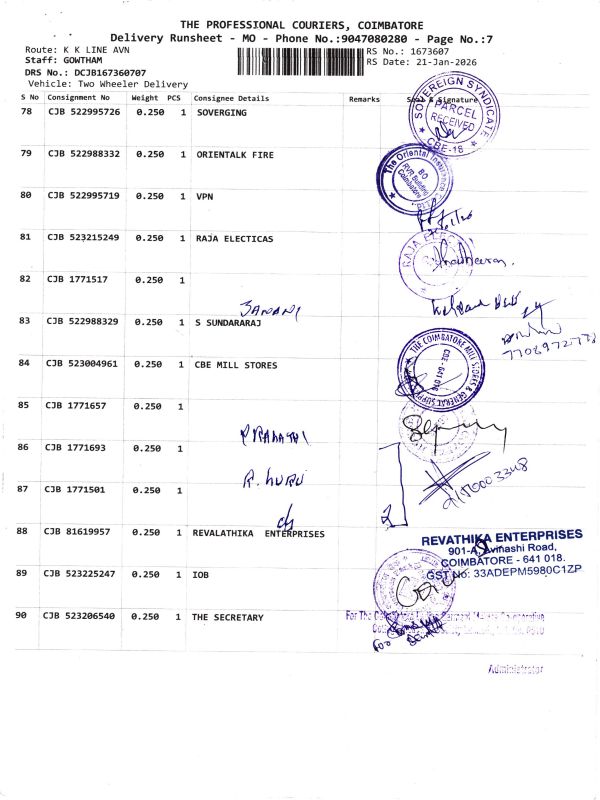 THE PROFESSIONAL COURIERS, COIMBATORE
Delivery Runsheet - MO - Phone No.:9047080280 - Page No.:7
Route: K K LINE AVN
RS No.: 1673607
Staff: GOWTHAM
RS Date: 21-Jan-2026
DRS No.: DCJB167360707
Vehicle: Two Wheeler Delivery
S No Consignment No Weight PCS Consignee Details Remarks Seal & Signature
78 CJB 522995726 0.250 1 SOVERGING
SOVEREIGN SYNDICATE
PARCEL
RECEIVED
CBE-18
79 CJB 522988332 0.250 1 ORIENTALK FIRE
The Oriental Insurance
BO
RVR Building
Coimbatore
80 CJB 522995719 0.250 1 VPN
81 CJB 523215249 0.250 1 RAJA ELECTICAS
RAJA
82 CJB 1771517 0.250 1
JANANI
83 CJB 522988329 0.250 1 S SUNDARARAJ
7708972773
84 CJB 523004961 0.250 1 CBE MILL STORES
THE COIMBATORE MILL STORES & GENERAL
CBE - 641 018
85 CJB 1771657 0.250 1
86 CJB 1771693 0.250 1
87 CJB 1771501 0.250 1
88 CJB 81619957 0.250 1 REVALATHIKA ENTERPRISES
REVATHIKA ENTERPRISES
901-A, Avinashi Road,
COIMBATORE - 641 018.
GST No: 33ADEPM5980C1ZP
89 CJB 523225247 0.250 1 IOB
90 CJB 523206540 0.250 1 THE SECRETARY
For The
Administrator